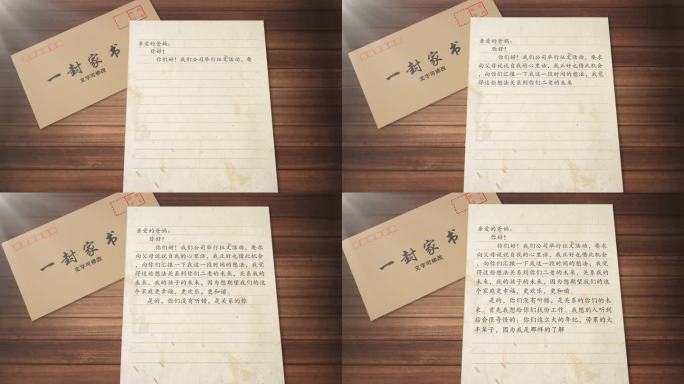 一封家书
文字可修改
亲爱的爸妈：
你好！
你们好！我们公司举行征文活动，要
一封家书
文字可修改
亲爱的爸妈：
你好！
你们好！我们公司举行征文活动，要求
向父母说说自我的心里话，我正好也借此机会
，向你们汇报一下我这一段时间的想法，我觉
得这些想法关系到你们二老的未来
一封家书
文字可修改
亲爱的爸妈：
你好！
你们好！我们公司举行征文活动，要求
向父母说说自我的心里话，我正好也借此机会
，向你们汇报一下我这一段时间的想法，我
觉得这些想法关系到你们二老的未来，关系我的
未来，我的孩子的未来，因为想期望我们的这
个家庭更幸福，更欢乐，更和谐。
是的，你们没有听错，是关系的你
一封家书
文字可修改
亲爱的爸妈：
你好！
你们好！我们公司举行征文活动，要求
向父母说说自我的心里话，我正好也借此机
会，向你们汇报一下我这一段时间的想法，我
觉得这些想法关系到你们二老的未来，关系我的
未来，我的孩子的未来，因为想期望我们的这
个家庭更幸福，更欢乐，更和谐。
是的，你们没有听错，是关系的你们的未
来。首先我想给你们找份工作。我想别人听到
后会很奇怪的：你们这么大的年纪，劳累的大
半辈子，因为我是那样的了解